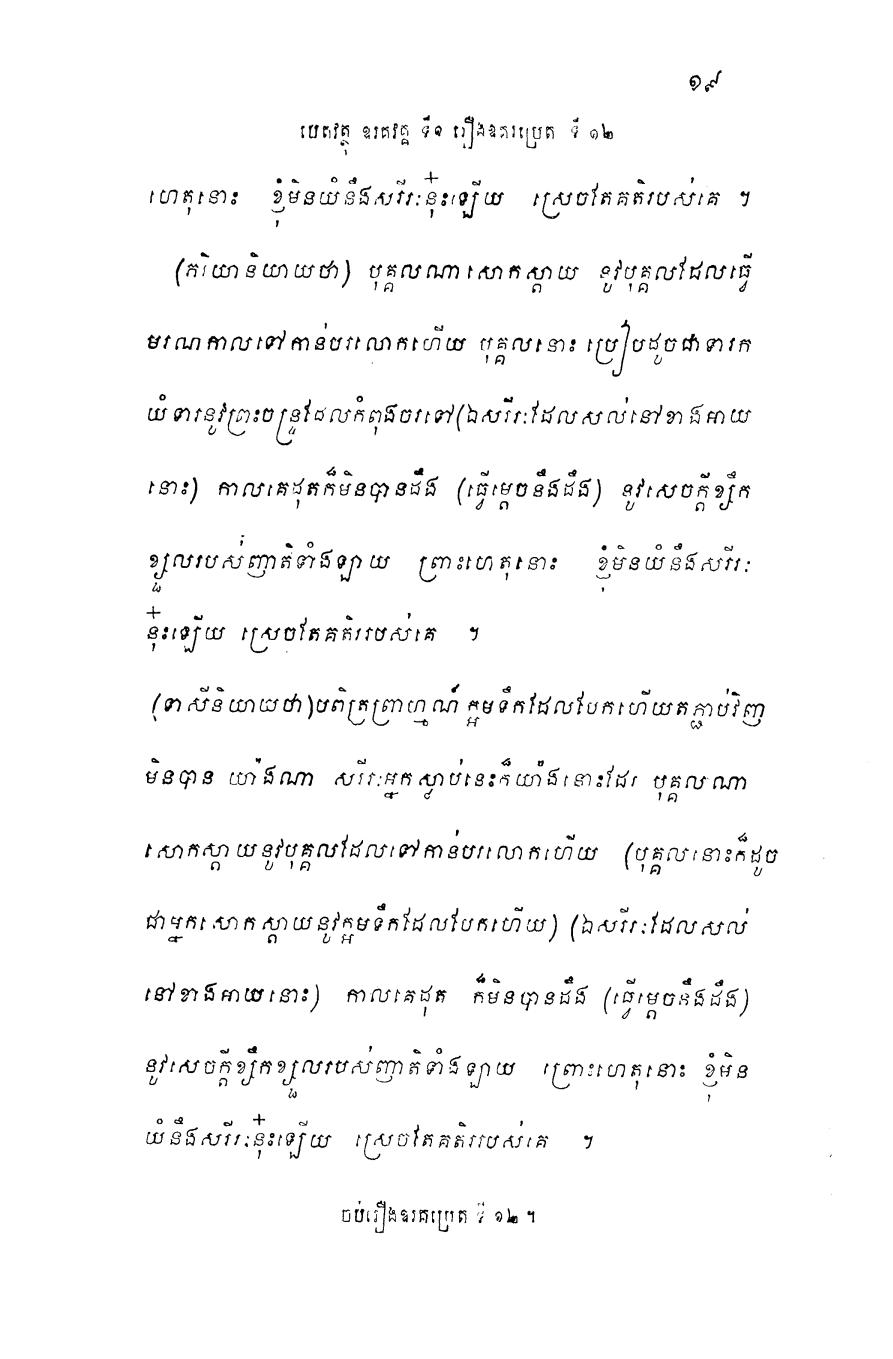 ១៩
បេតវត្ថុ ឧរគវគ្គ ទី១ រឿងឧរគប្រេត ទី ១២
ហេតុនោះ ខ្ញុំមិនយំនឹងសរីរៈនុ៎ះឡើយ ស្រេចតែគតិរបស់គេ ។
(ភរិយានិយាយថា) បុគ្គលណាសោកស្តាយ នូវបុគ្គលដែលធ្វើ
មរណកាលទៅកាន់បរលោកហើយ បុគ្គលនោះ ប្រៀបដូចជាទារក
យំទារនូវព្រះចន្ទ្រដែលកំពុងចរទៅ (ឯសរីរៈដែលសល់នៅខាងអាយ
នោះ) កាលគេដុតក៏មិនបានដឹង (ធ្វើម្តេចនឹងដឹង) នូវសេចក្តីខ្សឹក
ខ្សួលរបស់ញាតិទាំងឡាយ ព្រោះហេតុនោះ ខ្ញុំមិនយំនឹងសរីរៈ
នុ៎ះឡើយ ស្រេចតែគតិរបស់គេ ។
(ទាសីនិយាយថា) បពិត្រព្រាហ្មណ៍ ក្អមទឹកដែលបែកហើយតភ្ជាប់វិញ
មិនបាន យ៉ាងណា សរីរៈអ្នកស្លាប់នេះក៏យ៉ាងនោះដែរ បុគ្គលណា
សោកស្តាយនូវបុគ្គលដែលទៅកាន់បរលោកហើយ (បុគ្គលនោះក៏ដូច
ជាអ្នកសោកស្តាយនូវក្អមទឹកដែលបែកហើយ) (ឯសរីរៈដែលសល់
នៅខាងអាយនោះ) កាលគេដុត ក៏មិនបានដឹង (ធ្វើម្តេចនឹងដឹង)
នូវសេចក្តីខ្សឹកខ្សួលរបស់ញាតិទាំងឡាយ ព្រោះហេតុនោះ ខ្ញុំមិន
យំនឹងសរីរៈនុ៎ះឡើយ ស្រេចតែគតិរបស់គេ ។
ចប់រឿងឧរគប្រេត ទី ១២ ។